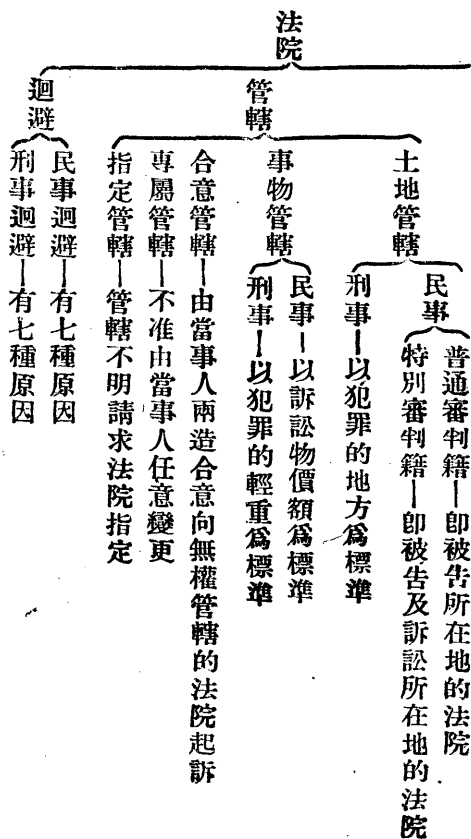 法院
管轄
土地管轄
民事
普通審判籍—卽被告所在地的法院
特別審判籍—卽被告及訴訟所在地的法院
刑事—以犯罪的地方爲標準
事物管轄
民事—以訴訟物價額爲標準
刑事—以犯罪的輕重爲標準
合意管轄—由當事人兩造合意向無權管轄的法院起訴
專屬管轄—不准由當事人任意變更
指定管轄—管轄不明請求法院指定
迴避
民事迴避—有七種原因
刑事迴避—有七種原因